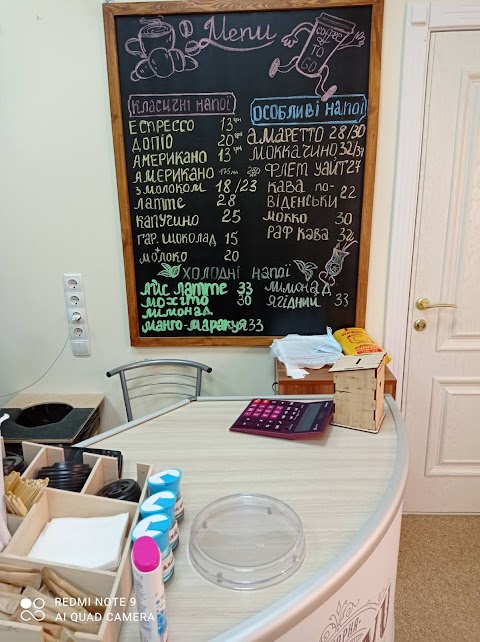 Menu
Coffee
TO
GO
КЛАСИЧНІ НАПОЇ
ЕСПРЕССО 13 грн
ДОПІО 20 грн
АМЕРИКАНО 13 грн
АМЕРИКАНО 175мл 250
З МОЛОКОМ 18/23
ЛАТТЕ 28
КАПУЧИНО 25
ГАР. ШОКОЛАД 15
+ МОЛОКО 20
ОСОБЛИВІ НАПОЇ
АМАРЕТТО 28/30
МОККАЧИНО 32/34
ФЛЕТ УАЙТ 27
КАВА ПО-
ВІДЕНСЬКИ 22
МОККО 30
РАФ КАВА 32
ХОЛОДНІ НАПОЇ
АЙС ЛАТТЕ 33
МОХІТО 30
ЛІМОНАД
МАНГО-МАРАКУЯ 33
ЛІМОНАД
ЯГІДНИЙ 33
REDMI NOTE 9
AI QUAD CAMERA